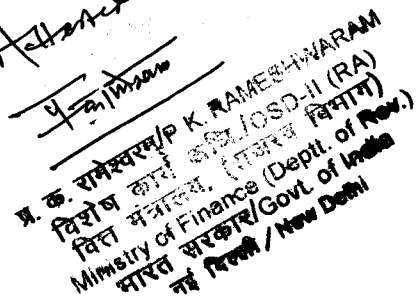 Attested
प्र. क. रामेश्वरम/P K. RAMESHWARAM
विशेष कार्य अधि./OSD-II (RA)
वित्त मंत्रालय, (राजस्व विभाग)
Ministry of Finance (Deptt. of Rev.)
भारत सरकार/Govt. of India
नई दिल्ली / New Delhi